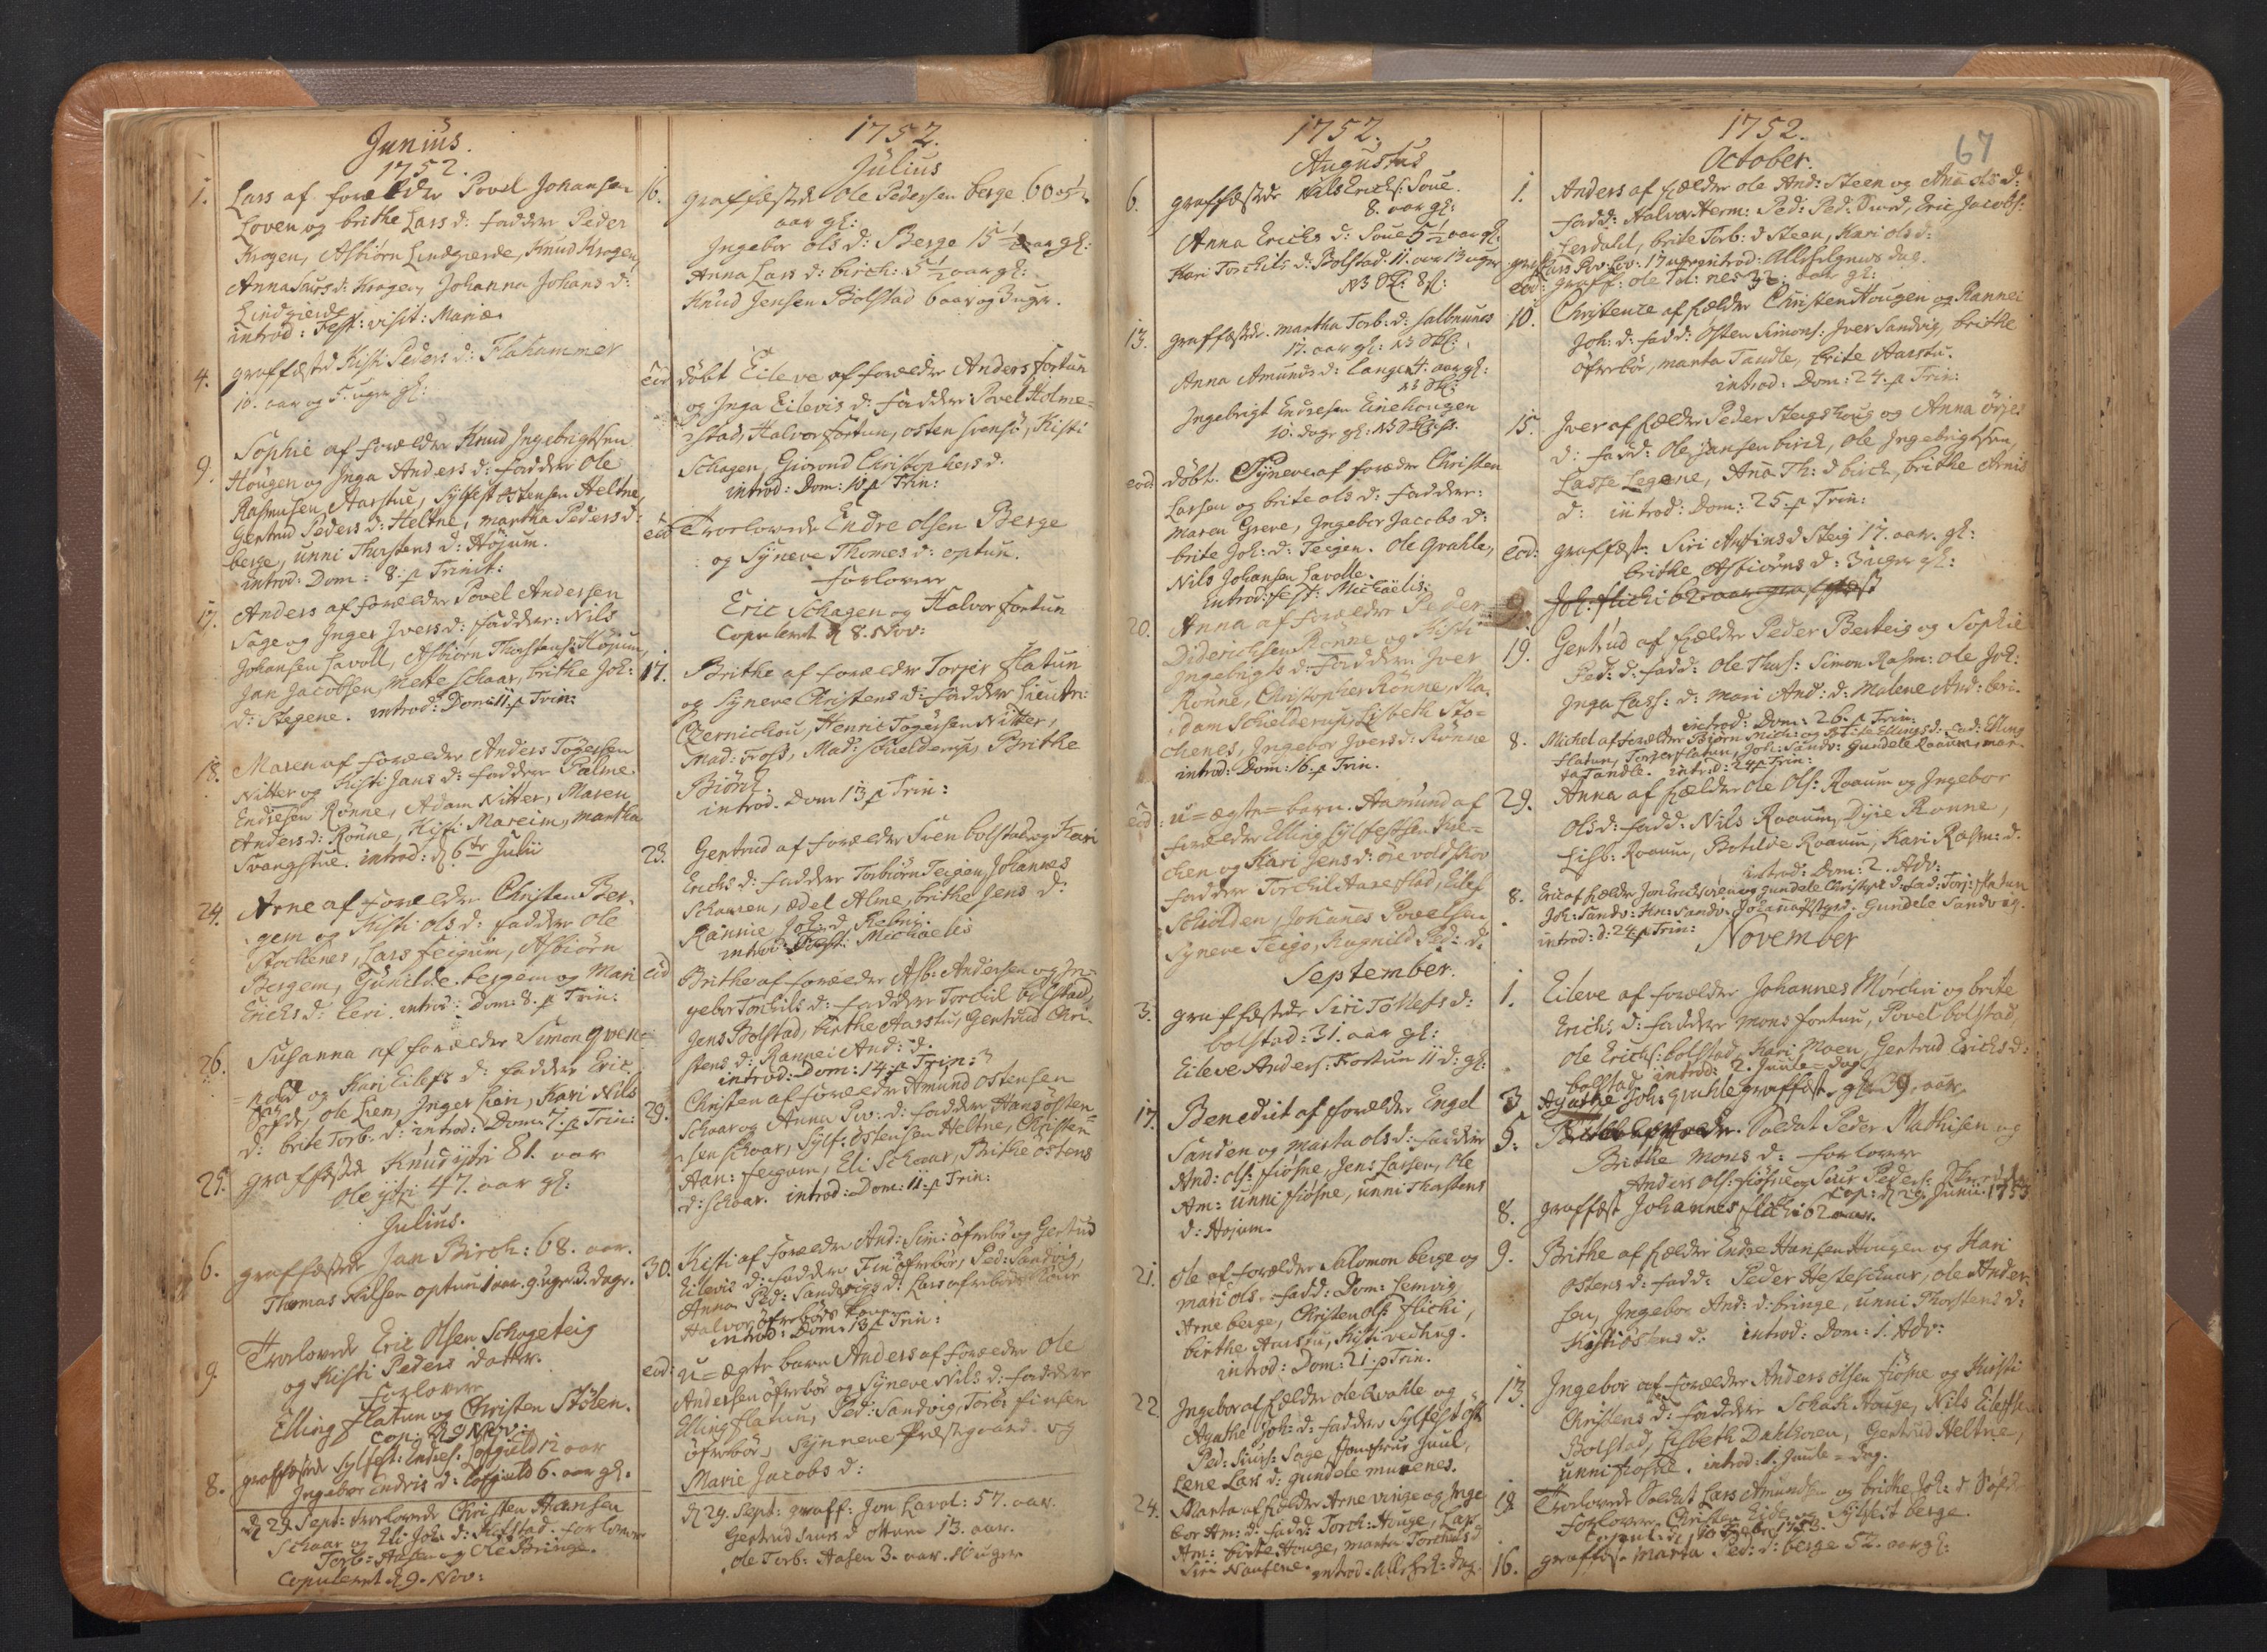 Junius.
1752.
1. Lars af forældre Povel Johansen
Loven og brithe Lars d: faddere Peder
Krogen, Asbiörn Lindgierde, Knud Krogen,
Anna Siurs d: Krogen, Johanna Johans d:
Lindgierde
introd: Fest: visit: Mariæ.
4. graffæsted Kisti Peders d: Flahammer
10. aar og 5. uger gl:
9. Sophie af forældre Knud Ingebrigtsen
Hougen og Inga Anders d: faddere Ole
Rasmusen Aarstue, Sylfest ostensen Heltne,
Gertrud Peders d: Heltne, martha Peders d:
berge, unni Thorstens d: Höjum.
introd: Dom: 8. p Trinit:
17. Anders af forældre Povel Andersen
Sage og Inger Ivers d: faddere: Nils
Johansen Lavoll, Asbiörn Thorstens: Höjum,
Jan Jacobsen, Mette schaar, brithe Joh:
d: Stegene. introd: Dom: 11. p Trin:
18. Maren af forældre Anders Tögersen
Nitter og Kisti Jans d: faddere Palme
Endresen Rönne, Adam Nitter, Maren
Anders d: Rönne, Kisti Mareim, martha
Svangstue. introd: d 6te Julii
24. Arne af forældre Christen Ber-
gem og Kisti ols d: faddere ole
Stochenes, Lars feigum, Asbiörn
Bergem, Gunilde bergem og Mari
Erichs d: Leri. introd: Dom: 8. p Trin:
26. Susanna af forældre Simon Qven-
nold og Kari Eilefs d: faddere Eric
ole Lien, Inger Lien, Kari Nils
d: brite Torb: d: introd: Dom: 7. p Trin:
29. graffæstede Knud ijtri 81. aar
ole ijtri 47. aar gl:
Julius.
6. graffæstede Jan Birch: 68. aar.
Thomas Nilsen optun 1 aar. 9. uger 3. dage.
9. Trorlovede Eric Olsen Schageteig
og Kisti Peders datter.
forlovere
Elling flatun og Christen Stölen.
cop: d 9 Nov:
8. graffæstede Sylfest: Endres: Lofgield 12 aar
Ingebor Endris d: Lofgield 6. aar gl.
d 29. Sept: trorlovede Christen Hansen
Schaar og Eli Joh: d: Kilstad. forlovere
Torb: Aasen og Ole Bringe.
Copuleret d 9. Nov:
1752.
Julius
16. graffæstede Ole Pedersen berge 60
aar gl:
Ingebor ols d: Berge 15 aar gl:
Anna Lars d: birch: 5 1/2 aar gl:
Knud Jensen Bolstad 6 aar og 3 uger.
eod döbt Eileve af forældre Anders fortun
og Inga Eilevis d: faddere Povel Holme-
stad, Halvor fortun, osten svensö, Kisti
Schagen, Giorond Christophers d.
introd: Dom: 10 p Trin:
eod Trorlovede Endre olsen Berge
og Syneve Thomes d: optun.
forlovere
Eric Schagen og Halvor fortun
Copuleret d 8. Nov:
17. Brithe af forældre Torger flatun
og Syneve Christens d: faddere Lieutn:
Czernichou, Henric Tögersen Nitter,
Mad: Fross, Mad: schielderup, Brithe
Biönt.
introd. Dom 13 p Trin:
23. Gertrud af forældre Sven bolstad og Kari
Erichs d: faddere Torbiörn Teigen, Johannes
Schouren, ædel Alme, brithe Jens d:
Rannie Joh: d Rebni
introd: Fest: Michaelis
eod Brithe af forældre Asb: Andersen og In-
gebor Torchils d: faddere Torchil bolstad,
Jens Bolstad, birthe Aarstu, Gertrud Chri-
stens d: Rannei And: d.
introd: Dom: 14. p Trin:
29. Christen af forældre Amund ostensen
Schaar og Anna Siv: d: faddere Hans östen-
sen schaar, Sylf: östensen Heltne, Christen
Aan: feigum, Eli Schaar, Brithe östens
d: schaar. introd: Dom: 11. p Trin:
30. Kisti af forældre And: Sim: öfrebö og Gertrud
Eilevis d: faddere Fin öfrebö, Ped: Sandvig,
Anna Ped: Sandvigs d: Lars öfrebös
Halvor öfrebös
introd: Dom: 13 p Trin:
eod: u=ægte barn Anders af forældre Ole
Andersen öfrebör og Syneve Nils d: faddere
Elling flatun, Ped: Sandvig, Torb: finsen
öfrebör, Synneve Præstegaard. og
Marie Jacobs d:
d 29. Sept: graff: Jon Lavol: 57. aar.
Gertrud Siurs d ottum 13. aar.
ole Torb: Aasen 3. aar. 10 uger
1752.
Augustus
6. graffæstede Nils Erichs: Soue.
8. aar gl:
Anna Erichs d: Soue 5 1/2 aar gl:
Kari Torchils d: Bolstad: 11. aar 13 uger
13. graffæstede. martha Torb: d:
17. aar gl:
Anna Amunds d: Langer 4. aar gl:
Ingebrigt Endresen Einehougen
10. dage gl:
eod döbt. Syneve af forældre Christen
Larsen og brite ols d: faddere:
Maren Greve, Ingebor Jacobs d:
brite Joh: d: Teigen. Ole Qvahle,
Nils Johansen Lavolle.
introd: fest: Michaëlis:
20. Anna af forældre Peder
Diderichsen Rönne og Kisti
Ingebrigts d: faddere Iver
Rönne, Christopher Rönne, Ma-
dam Schielderup, Lisbeth Sto-
chenes, Ingebor Ivers d: Rönne
introd: Dom: 16. p Trin.
eod: u=ægte=barn. Aamund af
forældre Elling Sylfestsen Kro-
ken og Kari Jens d:
faddere Torchil Aarestad, Eilef
Scholden, Johanes Povelsen
Syneve Teige, Ragnild Ped: d:
September.
3. graffæstede Siri Tollefs d:
bolstad: 31. aar gl:
Eileve Anders: Fortun 11 d: gl:
17. Benedict af forældre Engel
Sanden og Marta ols d: faddere
And: ols: fiösne, Jens Larsen, ole
Am: unni fiösne, unni Thorstens
d: Höjum.
21. Ole af forældre Salomon berge og
mari ols. fadd: Dom: Lemvig
Arne berge, Christen ols: flichi,
birthe Aarstu, Kisti vedhug.
introd: Dom: 21. p Trin.
22. Ingebor af fældre ole Qvahle og
Agathe Joh: d: faddere Sylfest ost:
Ped: Siurs: Sage, Jomfrue Juul,
Lene Lars d: gundele murenes.
24. Marta af fældre Arne vinge og Inge-
bor Am: d: fadd: Torch: Houge, Lars
Am: birte Houge, marta Torchils d
Siri Nontene. introd: Alle Hel: dag.
1752.
67
October.
1. Anders af fældre ole And: Steen og Anna ols d:
fadd: Halvor Herm: Ped: Ped: Sund, Eric Jacobs:
Lerdahl, brite Torb: d Steen, Kari ols d:
Lars Pov: Lov: 17 uger introd: Allehelgens dag.
eod: graff: ole Tol: nes 32. aar gl:
10. Christence af fældre Christen Hougen og Rannei
Joh: d: fadd: Osten Simons: Iver Sandvig, brithe
öfrebör, marta Tandle, brite Aarstu.
introd: Dom: 24. p Trin:
15. Iver af fældre Peder Steigshoug og Anna örjes
d: fadd: Ole Jansen birch, ole Ingebrigtsen,
Lasse Legene, Ana Th: d birch, brithe Arnis
d: introd: Dom: 25. p Trin:
eod: graffæst. Siri Anfins d Steig 17. aar. gl:
brithe Asbiörns d: 3 uger gl:
9. Joh: flichi 62 aar graffæst
19. Gertrud af fældre Peder Besteig og Sophie
Ped: d: fadd: Ole Thus: Simon Rasm: ole Joh:
Inga Lass: d: Mari And: d: Malene And: beri.
introd: Dom: 26. p Trin:
8. Michel af forældre Biörn Mich: og botilde Ellings d: fad: Elling
flatun, Torger flatun, Joh: Sandv: Gundele Roaum, mar-
ta Tandle. introd: 24 p Trin:
29. Anna af fældre Ole Ols: Roaum og Ingebor
Ols d: fadd: Nils Roaum, Dyre Ronne,
Lisb: Roaum, Botilde Roaum, Kari Rasm: d.
introd: Dom: 2. Adv:
8. Eric af fældre Jon Erichsöen og gundele Christoph d: fad: Torj: flatun
Joh: Sandv: Kn: Sandv: Johanna Gundele Sandvig.
introd: d: 24 p Trin:
November
1. Eileve af forældre Johannes Mörchri og brite
Erichs d: faddere Mons fortun, Povel bolstad,
ole Erichs: bolstad, Kari Moen, Gertrud Erichs d:
bolstad introd: 2. Juule=dag.
3 Agathe Joh: qvahle graffæst. gl: 39. aar
5. Soldat Peder Mathisen og
Brithe Mons d: forlovere
Anders ols: fiösne og Siur Peders:
cop: d 29. Junii. 1753
8. graffæst Johannes flichi 62 aar.
9. Brithe af fældre Endre Hansen Hougen og Kari
ostens d: fadd: Peder Hesteschaar, ole Ander-
sen, Ingebor And: d: bringe, unni Thorstens d:
Kisti östens d: introd: Dom: 1. Adv:
13. Ingebor af forældre Anders olsen fiösne og Kirsti
Christens d: faddere Schach Houge, Nils Eilefs:
Bolstad, Lisbeth Dahlsören, Gertrud Heltne,
unni fiösne. introd: 1. Juule=Dag.
19. Trorlovede Soldat Lars Amundsen og brithe Joh: d
forlovere Christen Eide og Sylfest berge.
16. graffæst. Marta Ped: d: berge 52. aar gl: